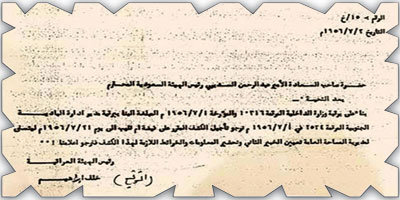 الرقم > ١٥/غ
التاريخ ١٩٥٦/٧/٢م
حضرة صاحب السعادة الأمير عبد الرحمن السديري رئيس الهيئة السعودية المحترم
بعد التحية
بناءً على برقية وزارة الداخلية المرقمة ١٠٢١٦ والمؤرخة ١٩٥٦/٧/١ المبلغة الينا ببرقية مدير ادارة البادية
الجنوبية المرقمة ٢٠٢٤ في ١٩٥٦/٧/١م نرجو تأجيل الكشف على غيضة ام قليب الى يوم ١٩٥٦/٧/٢١م ليتسنى
لمديرية المساحة العامة تعيين الخبير الثاني وتحضير المعلومات والخرائط اللازمة لهذا الكشف نرجو اعلامنا
رئيس الهيئة العراقية
(التوقيع) خالد ابراهيم